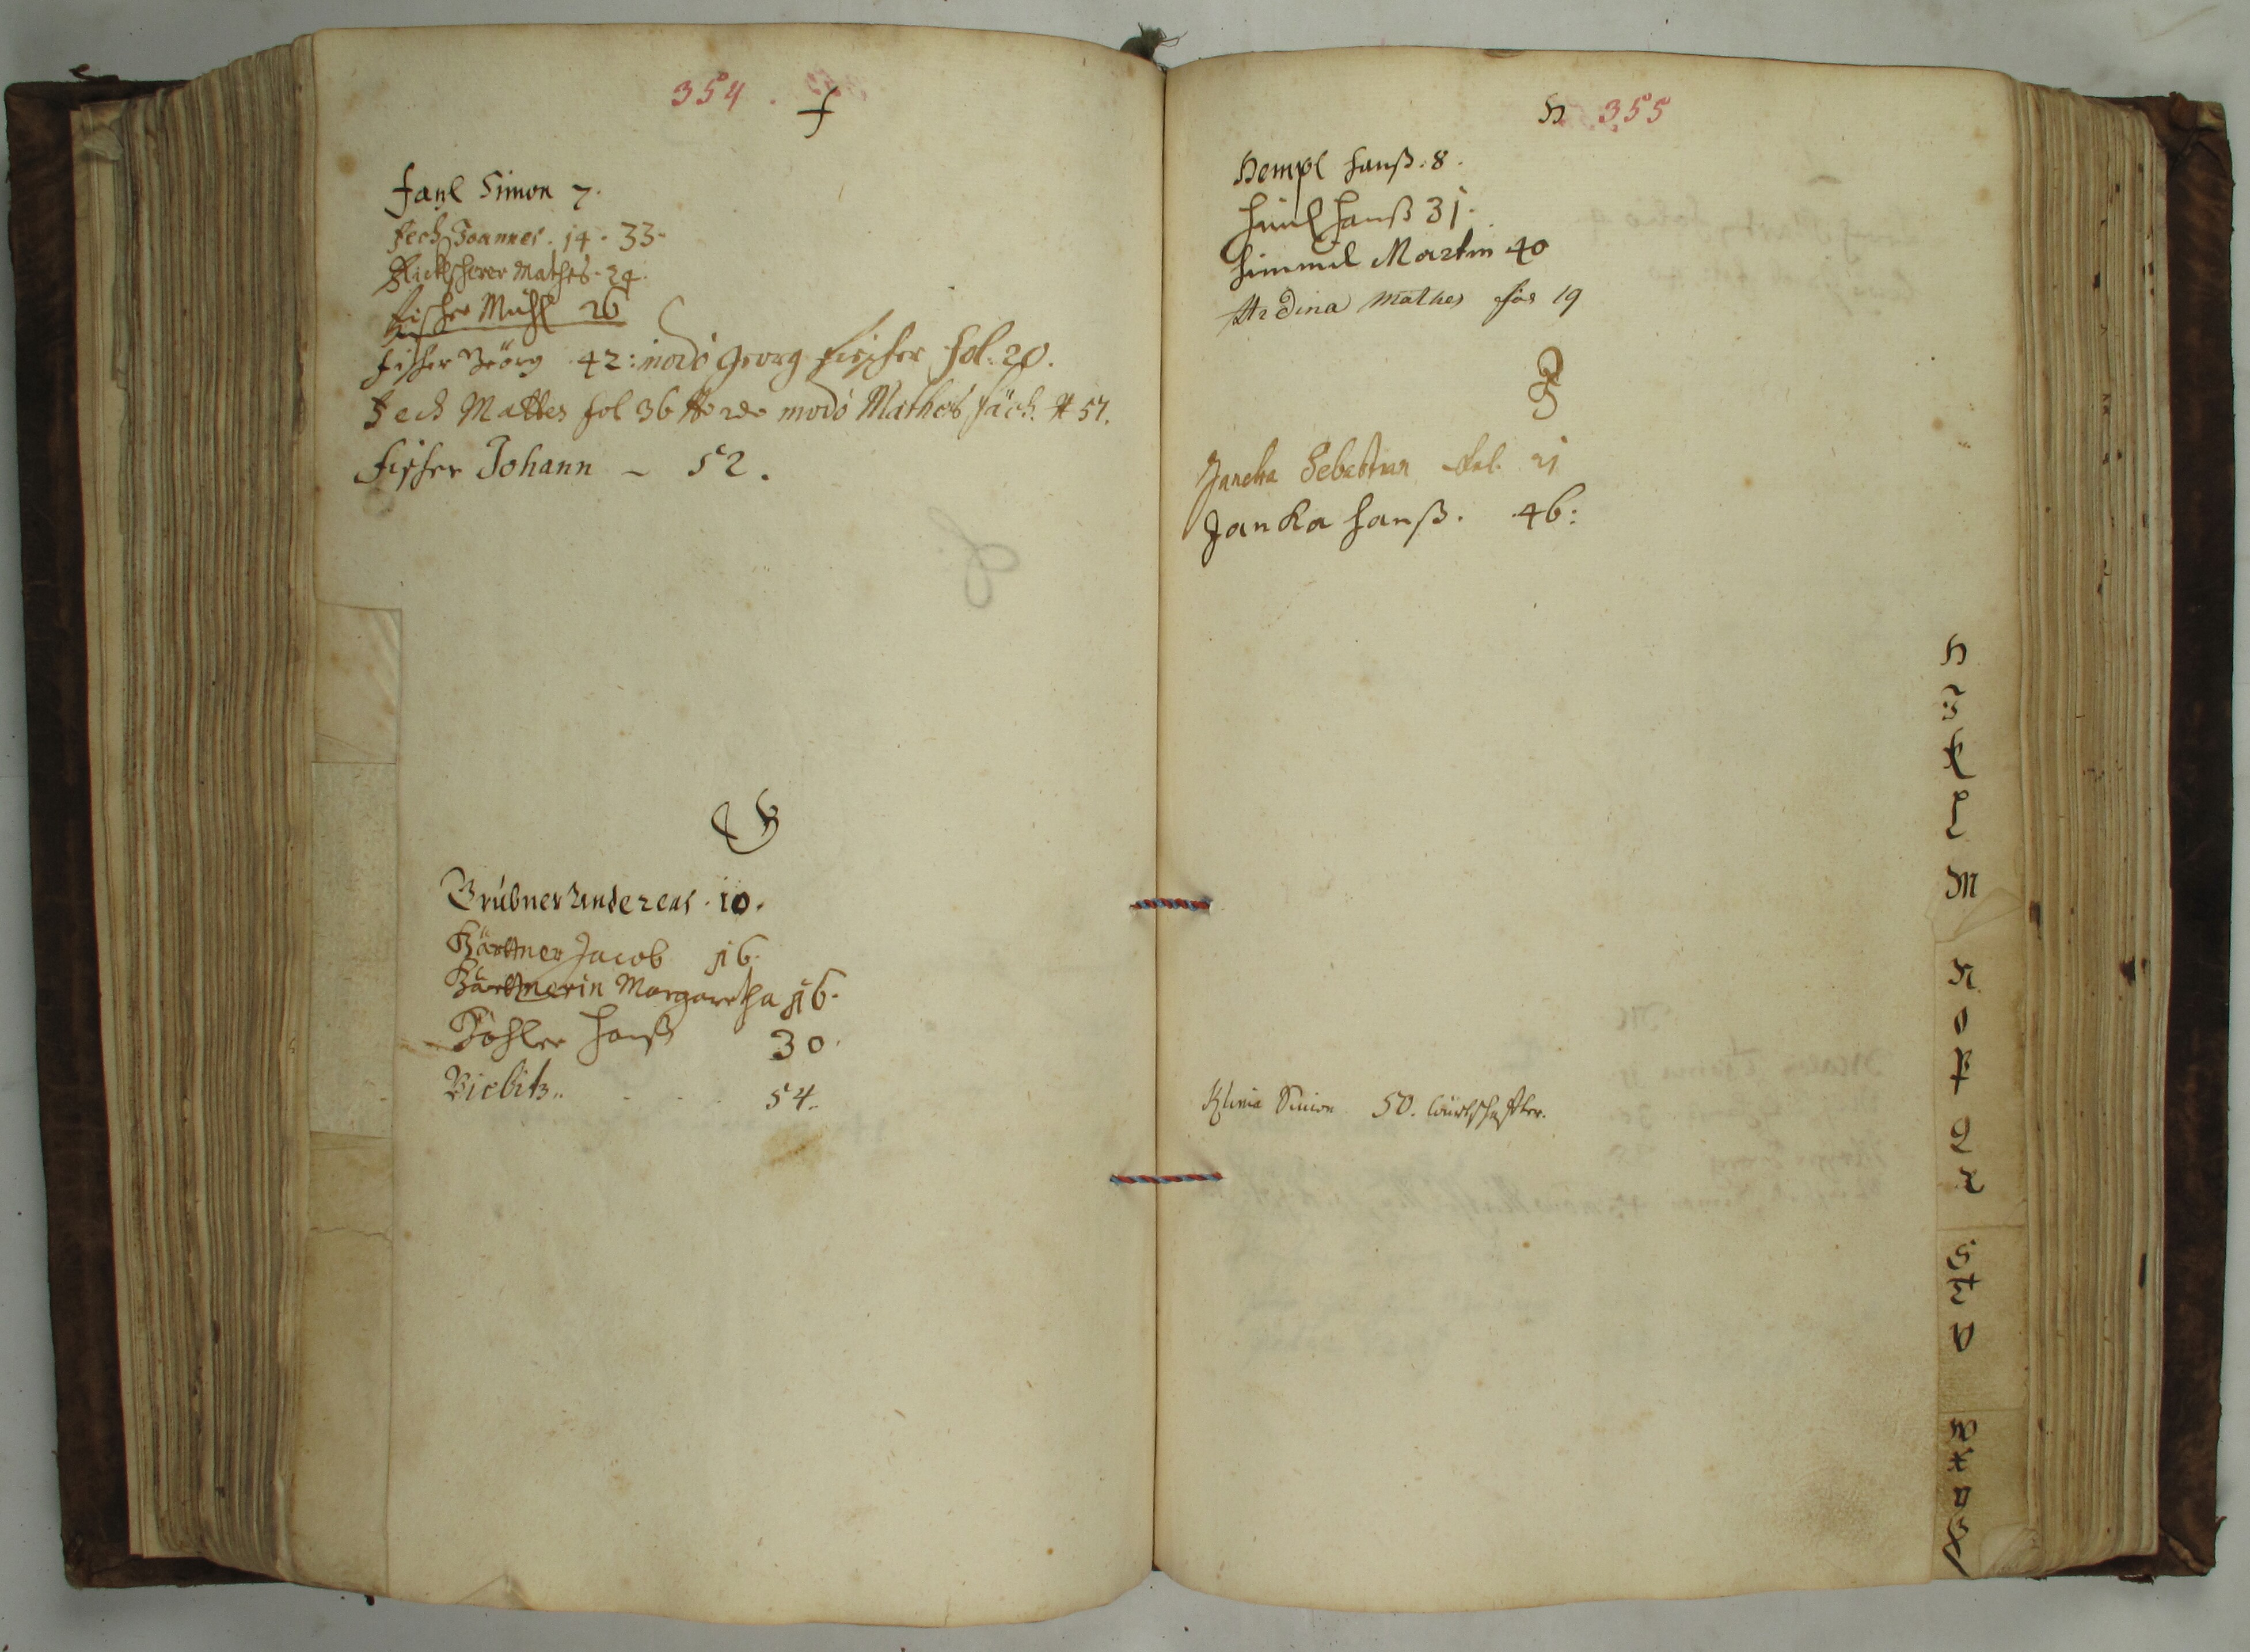 354.
F
Fanl Simon 7.
Fech Joannes. 14. 33.
Flickscherer Mathes. 24.
Fischer Mühl 26
Fischer Georg 42: modo Georg Fischer fol: 20.
Fech Mattes fol 36 modo Mathes Fäch. 57.
Fischer Johann - 52.
G
Grübner Andereas. 10.
Gärttner Jacob 16.
Gärttnerin Margaretha 16.
Göhler Hanß 30.
Giebitz.. 54.
H 355
Hempl Hanß. 8.
Hanß 31.
Himmel Martin 40
Hrdina Mathes fol 19
J
Jancka Sebastian fol. 21
Janka Hanß. 46:
Klima Simon 50.
H
J
K
L
M
N
O
P
Q
R
S
T
V
W
X
Y
Z